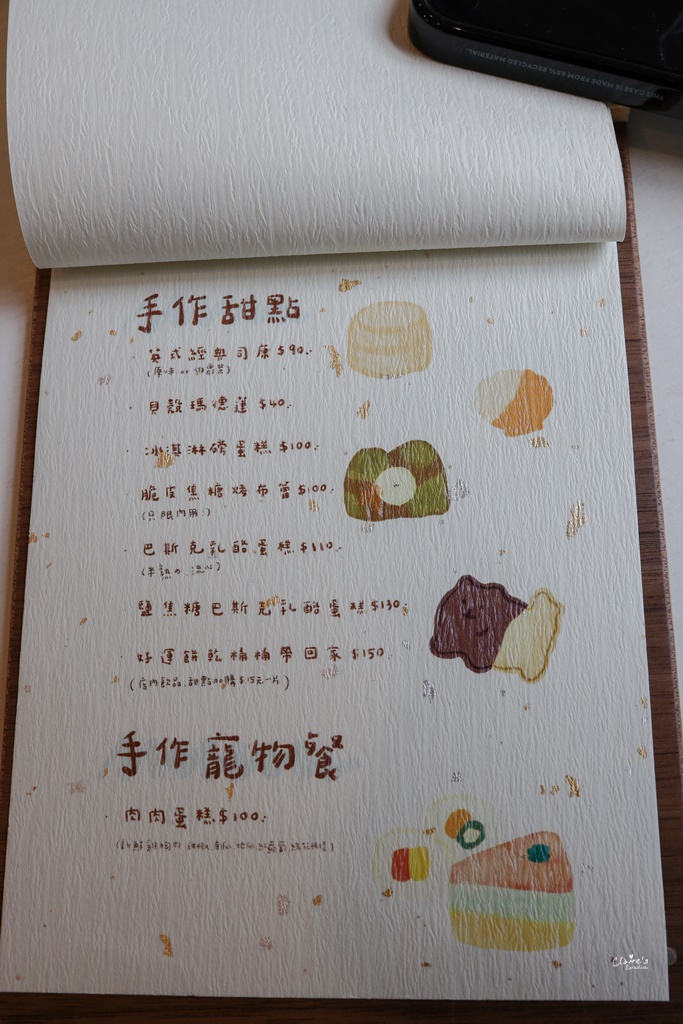 THIS CASE IS MADE FROM 65% RECYCLED MATERIAL.
手作甜點
· 英式經典司康 $90.
(原味 or 伯爵茶)
· 貝殼瑪德蓮 $40.
· 冰淇淋磅蛋糕 $100.
· 脆皮焦糖烤布蕾 $100.
(只限內用)
· 巴斯克乳酪蛋糕 $110.
(半熟の流心)
· 鹽焦糖巴斯克乳酪蛋糕 $130.
· 好運餅乾桶桶帶回家 $150
(店內飲品、甜點加購 $15元一片)
手作寵物餐
· 肉肉蛋糕 $100.
Claire's